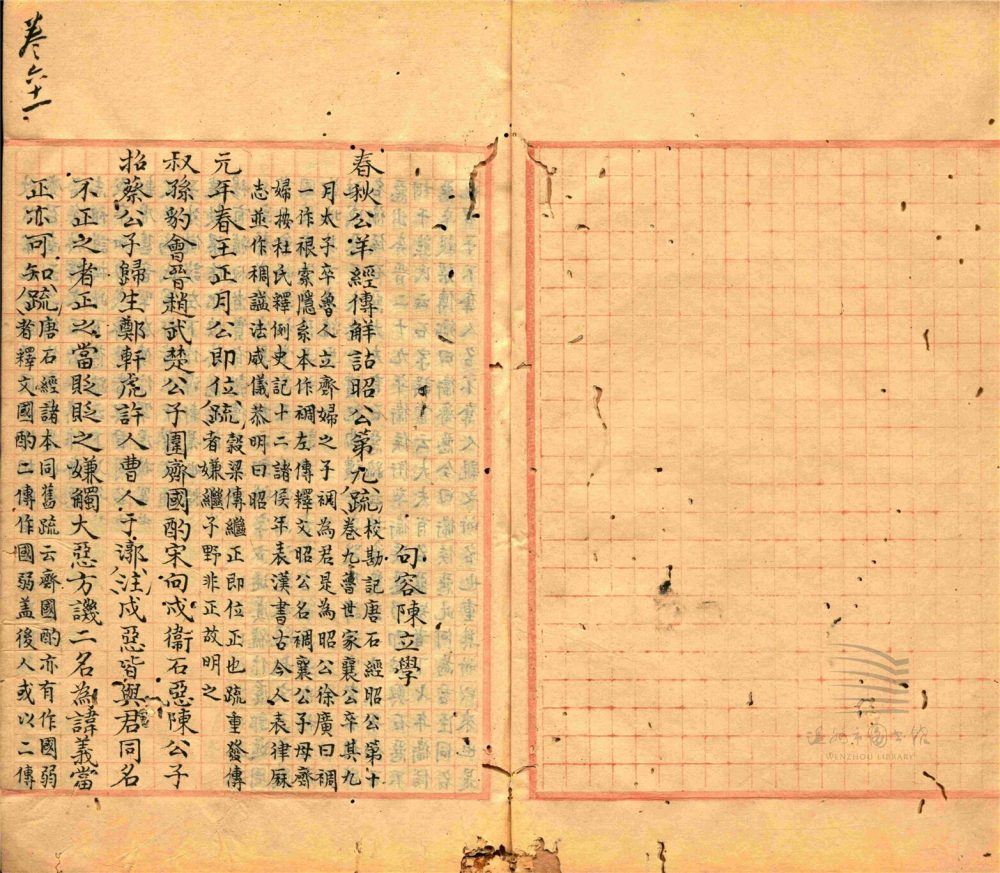 卷六十一
句容陳立學
春秋公洋經傳觧詁昭公第九疏校勘記唐石經昭公第十
卷九魯世家襄公卒其九
月太子卒魯人立齊婦之子裯為君是為昭公徐廣曰裯
一作索隱系本作裯左傳釋文昭公名裯襄公子母齊
婦按杜氏釋例史記十二諸侯年表漢書古今人表律厤
志並作稠謚法威儀恭明曰昭
元年春王正月公即位疏穀梁傳繼正即位正也疏重發傳
者嫌繼子野非正故明之
叔孫豹會晉趙武楚公子圍齊國酌宋向戌衞石惡陳公子
招蔡公子歸生鄭軒虎許人曹人于漷注戌惡皆與君同名
不正之者正之當貶貶之嫌觸大惡方譏二名為諱義當
正亦可知疏唐石經諸本同舊疏云齊國酌亦有作國弱
者釋文國酌二傳作國弱盖後人或以二傳
温州市图书馆
WENZHOU LIBRARY